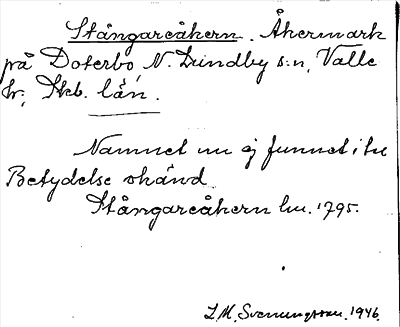 Stångareåkern. Åkermark
på Doterbo N. Lundby s:n, Valle
hr, Skb. län.
Namnet nu ej funnet i bu
Betydelse okänd
Stångareåkern lm. 1795.
L.M. Svenungsson. 1946.